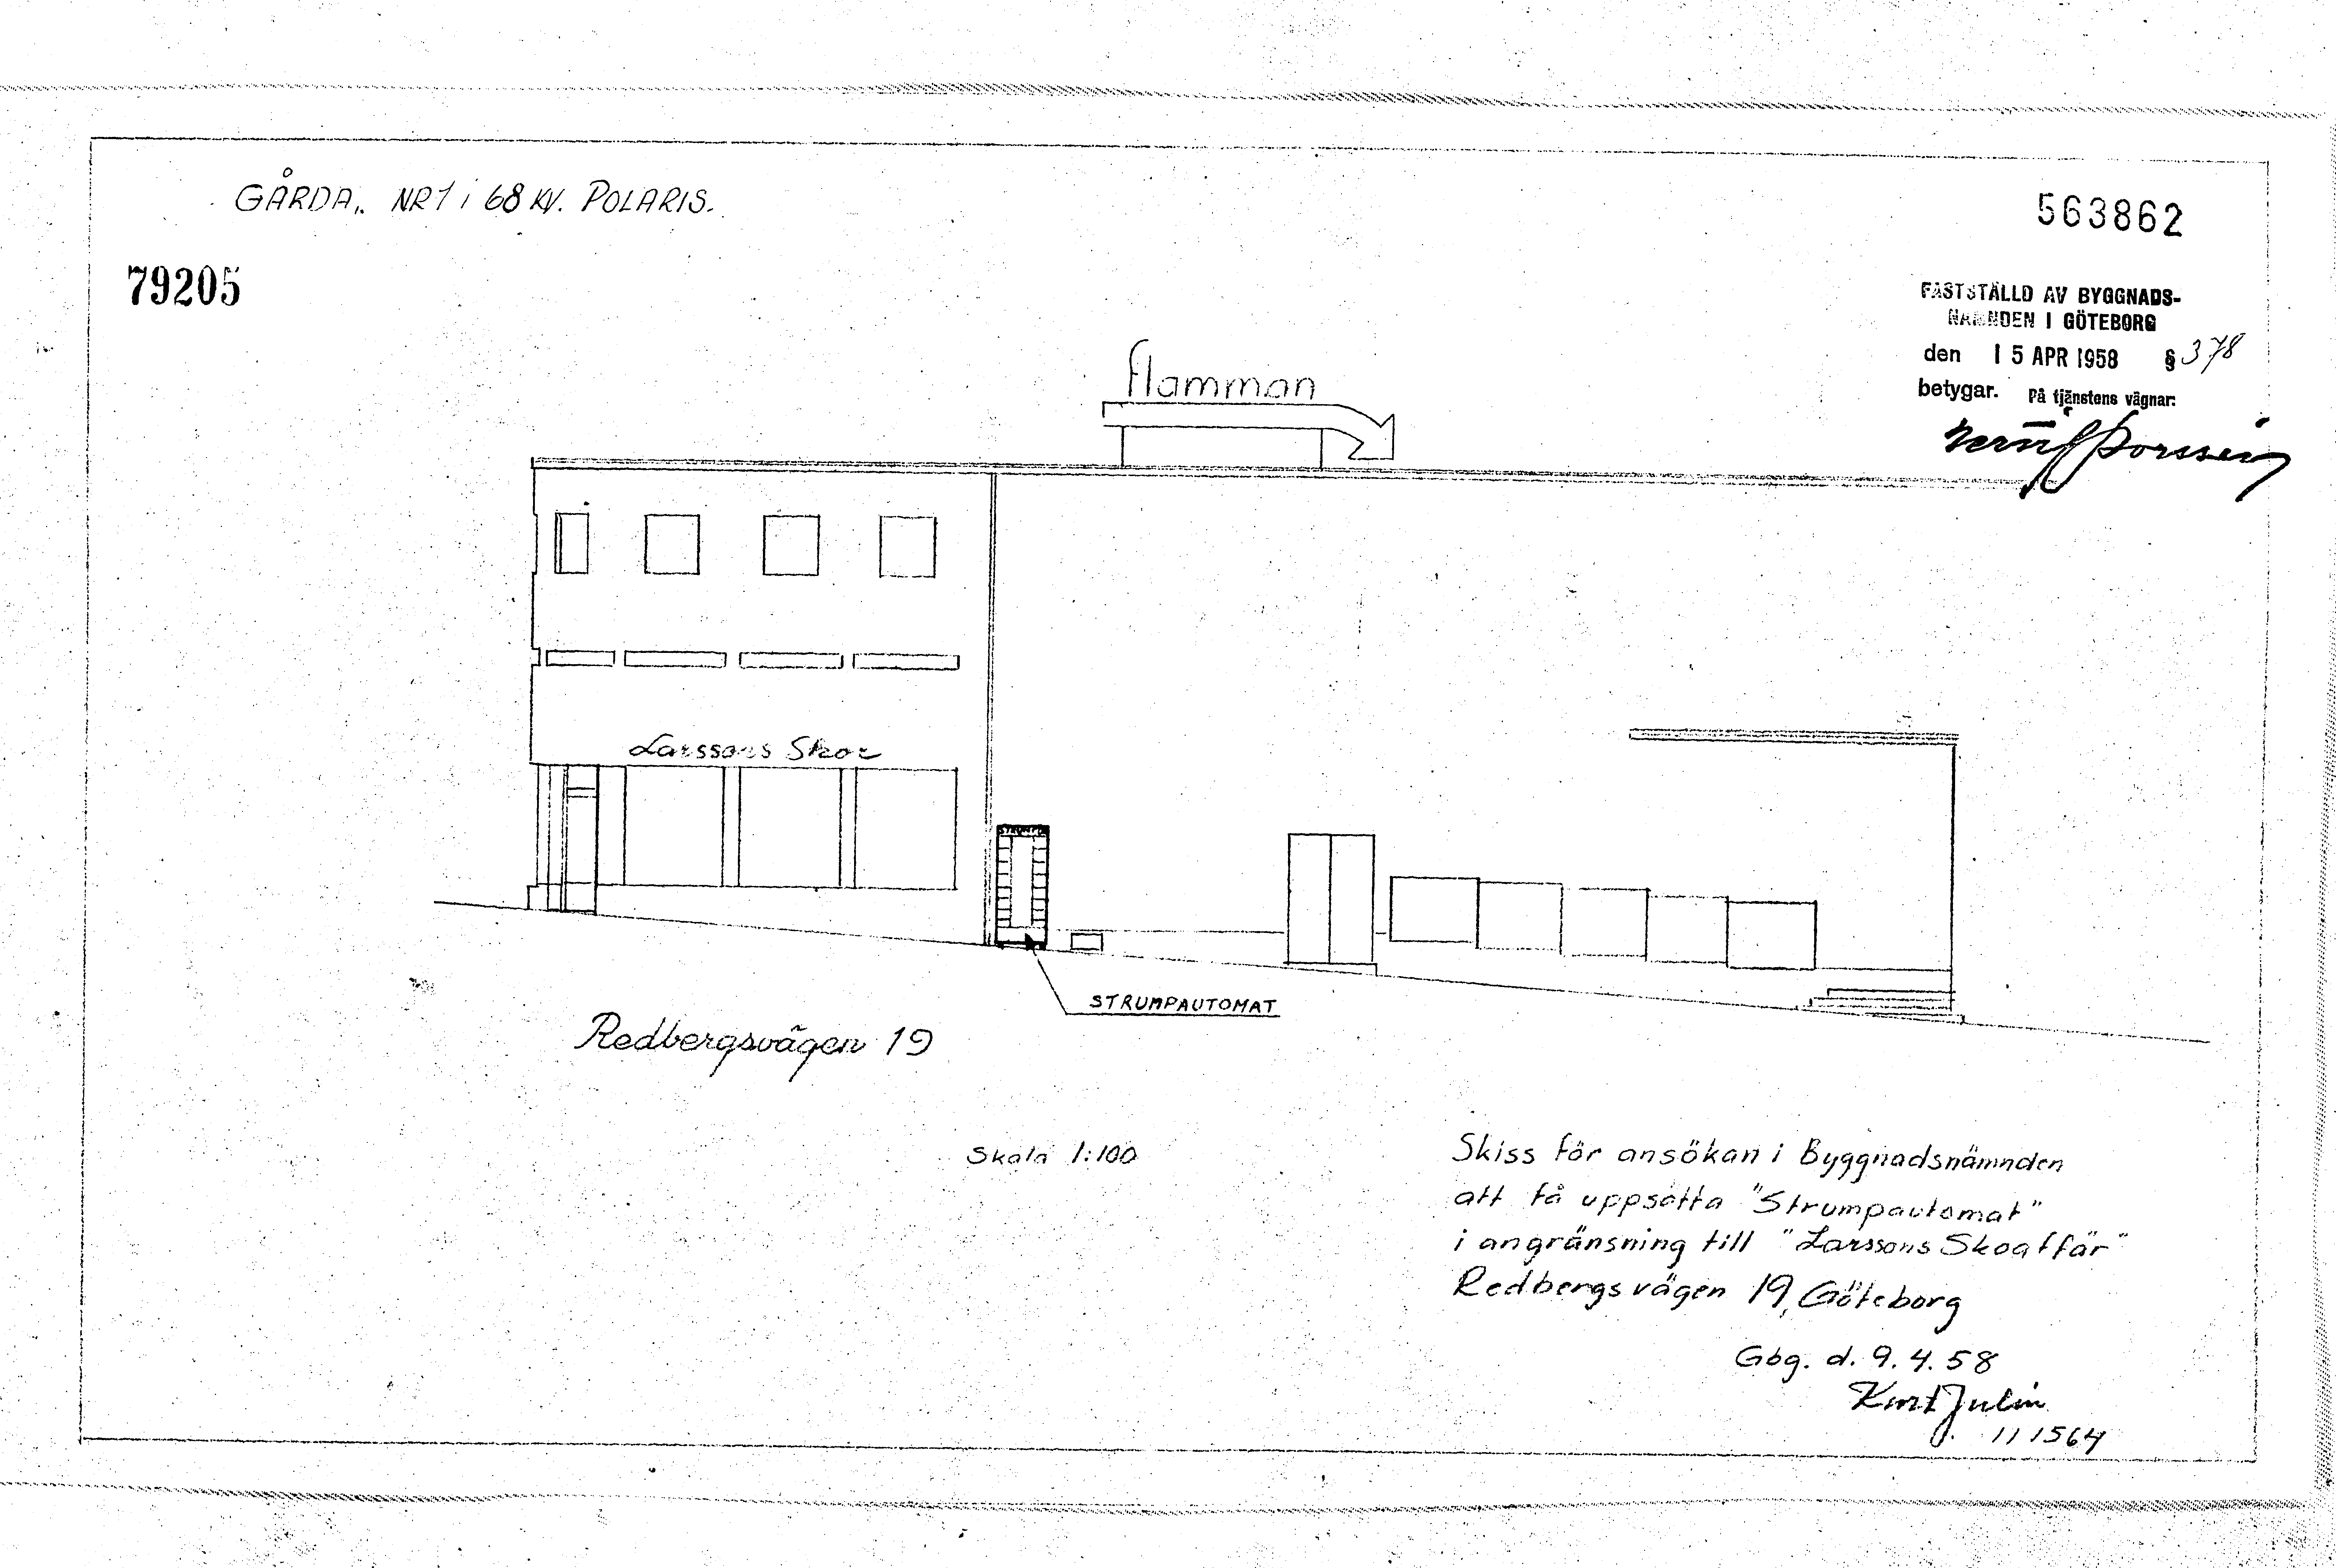 GÅRDA. NR 1 i 68 KV. POLARIS.
563862
79205
FASTSTÄLLD AV BYGGNADS-
NÄMNDEN I GÖTEBORG
den 15 APR 1958 § 378
betygar. På tjänstens vägnar:
flamman
Larssons Skor
STRUMPOR
STRUMPAUTOMAT
Redbergsvägen 19
Skala 1:100
Skiss för ansökan i Byggnadsnämnden
att få uppsätta "Strumpautomat"
i angränsning till "Larssons Skoaffär"
Redbergsvägen 19, Göteborg
Gbg. d. 9. 4. 58
Kurt Julin
111564